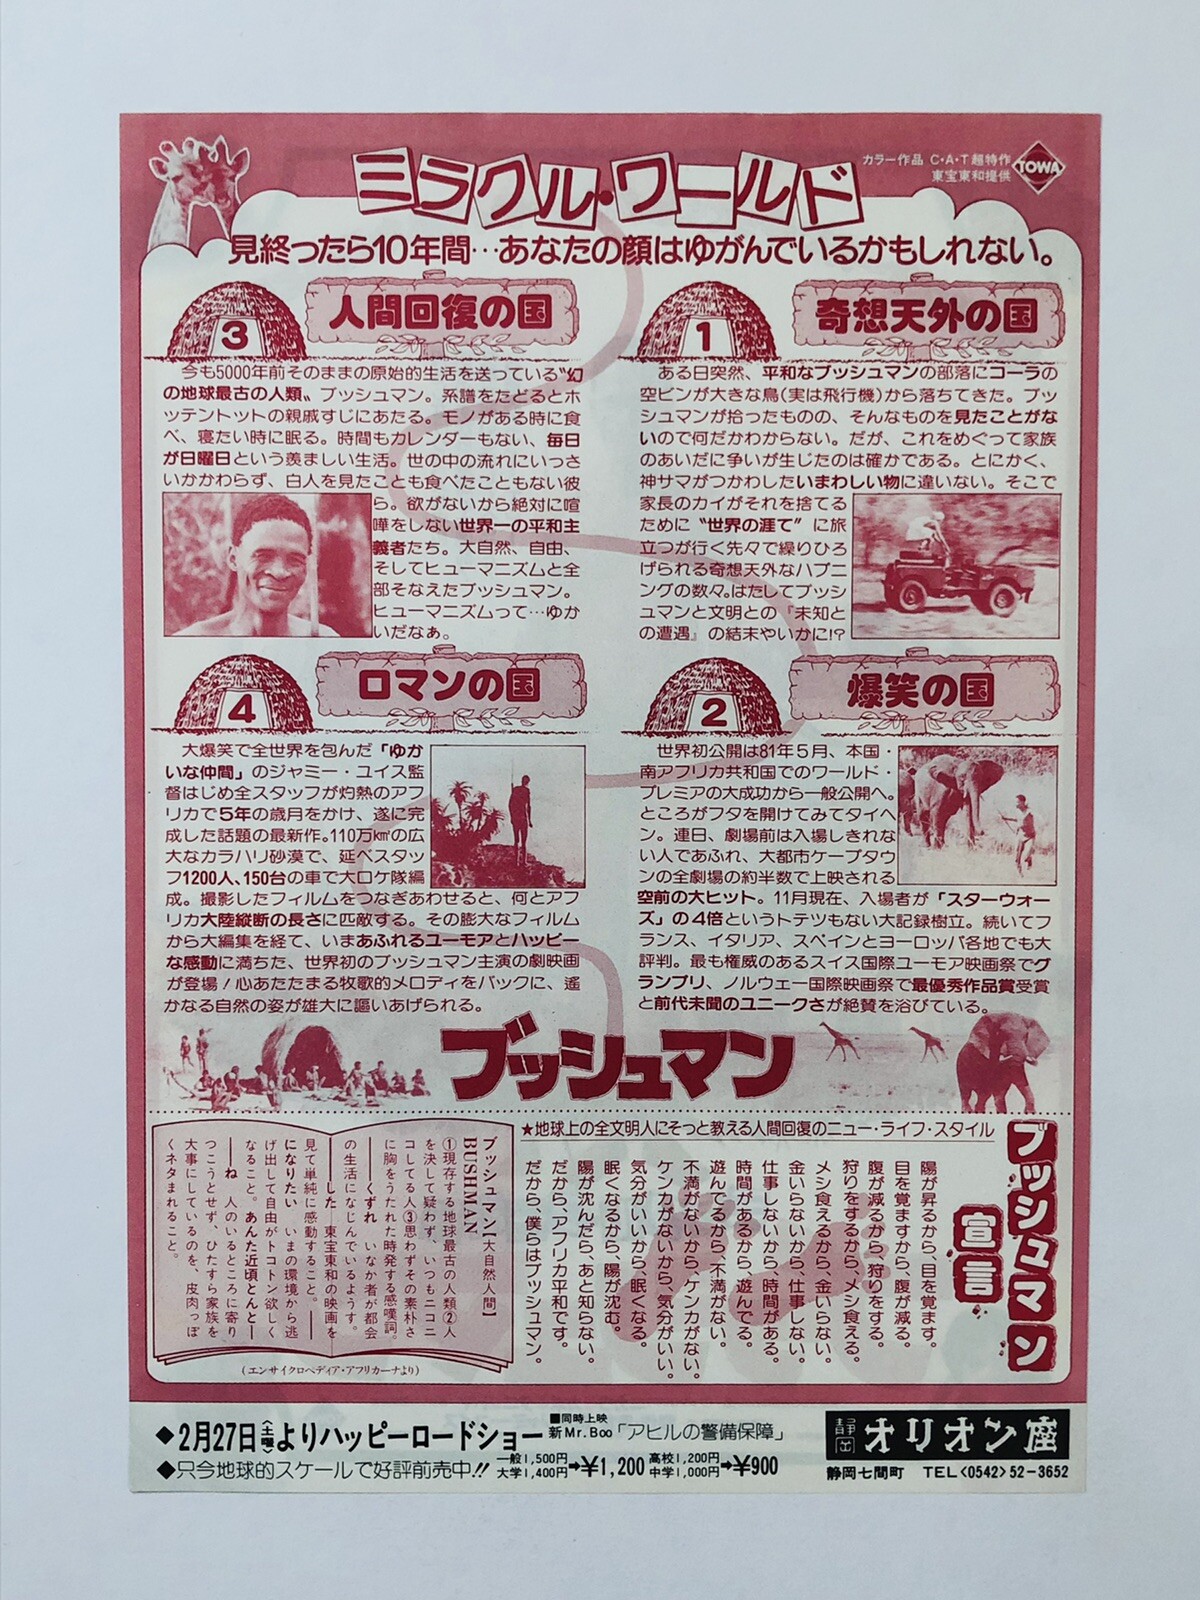 ミラクル・ワールド
カラー作品 C・A・T超特作
東宝東和提供
TOWA
見終ったら10年間…あなたの顔はゆがんでいるかもしれない。
1
奇想天外の国
ある日突然、平和なブッシュマンの部落にコーラの
空ビンが大きな鳥(実は飛行機)から落ちてきた。ブッ
シュマンが拾ったものの、そんなものを見たことがな
いので何だかわからない。だが、これをめぐって家族
のあいだに争いが生じたのは確かである。とにかく、
神サマがつかわしたいまわしい物に違いない。そこで
家長のカイがそれを捨てる
ために〝世界の涯て〟に旅
立つが行く先々で繰りひろ
げられる奇想天外なハプニ
ングの数々。はたしてブッシ
ュマンと文明との『未知と
の遭遇』の結末やいかに!?
2
爆笑の国
世界初公開は81年5月、本国・
南アフリカ共和国でのワールド・
プレミアの大成功から一般公開へ。
ところがフタを開けてみてタイヘ
ン。連日、劇場前は入場しきれな
い人であふれ、大都市ケープタウ
ンの全劇場の約半数で上映される
空前の大ヒット。11月現在、入場者が「スターウォー
ズ」の4倍というトテツもない大記録樹立。続いてフ
ランス、イタリア、スペインとヨーロッパ各地でも大
評判。最も権威のあるスイス国際ユーモア映画祭でグ
ランプリ、ノルウェー国際映画祭で最優秀作品賞受賞
と前代未聞のユニークさが絶賛を浴びている。
3
人間回復の国
今も5000年前そのままの原始的生活を送っている〝幻
の地球最古の人類〟ブッシュマン。系譜をたどるとホ
ッテントットの親戚すじにあたる。モノがある時に食
べ、寝たい時に眠る。時間もカレンダーもない、毎日
が日曜日という羨ましい生活。世の中の流れにいっさ
いかかわらず、白人を見たことも食べたこともない彼
ら。欲がないから絶対に喧
嘩をしない世界一の平和主
義者たち。大自然、自由、
そしてヒューマニズムと全
部そなえたブッシュマン。
ヒューマニズムって…ゆか
いだなぁ。
4
ロマンの国
大爆笑で全世界を包んだ「ゆか
いな仲間」のジャミー・ユイス監
督はじめ全スタッフが灼熱のアフ
リカで5年の歳月をかけ、遂に完
成した話題の最新作。110万km²の広
大なカラハリ砂漠で、延べスタッ
フ1200人、150台の車で大ロケ隊編
成。撮影したフィルムをつなぎあわせると、何とアフ
リカ大陸縦断の長さに匹敵する。その膨大なフィルム
から大編集を経て、いまあふれるユーモアとハッピー
な感動に満ちた、世界初のブッシュマン主演の劇映画
が登場!心あたたまる牧歌的メロディをバックに、遥
かなる自然の姿が雄大に謳いあげられる。
ブッシュマン
★地球上の全文明人にそっと教える人間回復のニュー・ライフ・スタイル
ブッシュマン
宣言
陽が昇るから、目を覚ます。
目を覚ますから、腹が減る。
腹が減るから、狩りをする。
狩りをするから、メシ食える。
メシ食えるから、金いらない。
金いらないから、仕事しない。
仕事しないから、時間がある。
時間があるから、遊んでる。
遊んでるから、不満がない。
不満がないから、ケンカがない。
ケンカがないから、気分がいい。
気分がいいから、眠くなる。
眠くなるから、陽が沈む。
陽が沈んだら、あと知らない。
だから、アフリカ平和です。
だから、僕らはブッシュマン。
ブッシュマン【大自然人間】
BUSHMAN
①現存する地球最古の人類②人
を決して疑わず、いつもニコニ
コしてる人③思わずその素朴さ
に胸をうたれた時発する感嘆詞。
──くずれ いなか者が都会
の生活になじんでいるようす。
──した 東宝東和の映画を
見て単純に感動すること。──
になりたい いまの環境から逃
げ出して自由がトコトン欲しく
なること。あんた近頃とんと─
──ね 人のいるところに寄り
つこうとせず、ひたすら家族を
大事にしているのを、皮肉っぽ
くネタまれること。
(エンサイクロペディア・アフリカーナより)
◆2月27日〈土曜〉よりハッピーロードショー
■同時上映
新Mr.Boo「アヒルの警備保障」
◆只今地球的スケールで好評前売中!!
一般1,500円
大学1,400円
➡¥1,200
高校1,200円
中学1,000円
➡¥900
静岡 オリオン座
静岡七間町 TEL<0542>52-3652